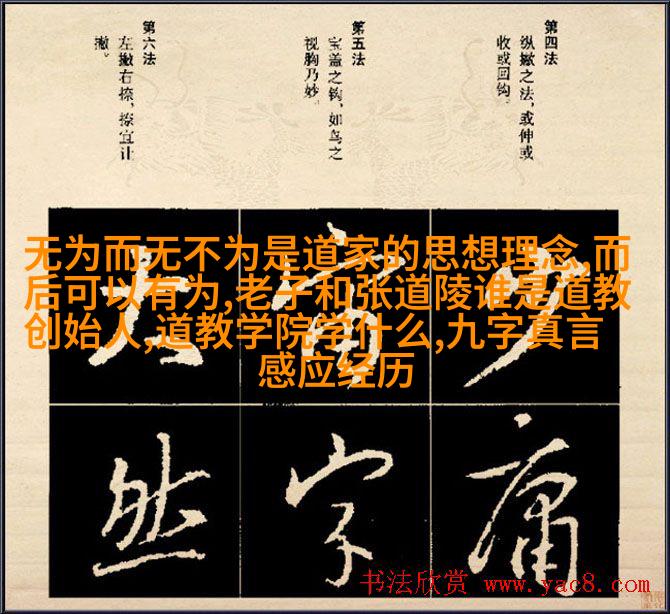 第四法
纵撇之法，或伸或
收或回钩。
第五法
宝盖之钩，如鸟之
视胸乃妙。
第六法
左撇右捺，捺宜让
撇。
无为而无不为是道家的思想理念,而
后可以有为,老子和张道陵谁是道教
创始人,道教学院学什么,九字真言
感应经历
庸
字
然
书法欣赏 www.yac8.com